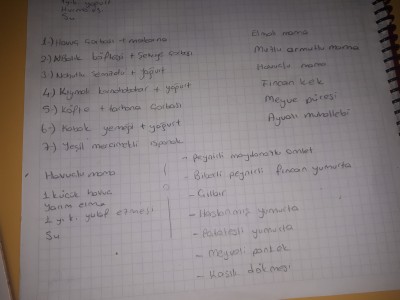 yoğurt
Su
1-) Havuç çorbası + makarna
2-) Mercimek köftesi + Sebze çorbası
3-) Nohutlu Semizotu + yoğurt
4-) Kıymalı karnabahar + yoğurt
5-) Köfte + tarhana çorbası
6-) Kabak yemeği + yoğurt
7-) Yeşil mercimekli ıspanak
Elmalı mama
Muzlu armutlu mama
Havuçlu mama
Fincan kek
Meyve püresi
Ayvalı muhallebi
Havuçlu mama
1 küçük havuç
Yarım elma
1 y.k. yulaf ezmesi
Su
- Peynirli maydanozlu omlet
- Biberli peynirli fincan yumurta
- Çılbır
- Haşlanmış yumurta
- Patatesli yumurta
- Meyveli pankek
- Kaşık dökmesi